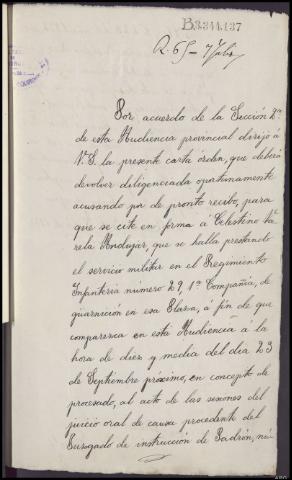 B3344,137
Por acuerdo de la Sección 2ª
de esta Audiencia provincial dirijo á
V.S. la presente carta órden, que deberá
devolver diligenciada oportunamente
acusando por de pronto recibo, para
que se cite en forma á Celestino Va-
rela Andujar, que se halla prestando
el servicio militar en el Regimiento
Infanteria número 29, 1ª Compañia, de
guarnición en esa Plaza, á fin de que
comparezca en esta Audiencia á la
hora de diez y media del dia 23
de Septiembre próximo, en concepto de
procesado, al acto de las sesiones del
juicio oral de causa procedente del
Juzgado de instrucción de Padrón, nú-